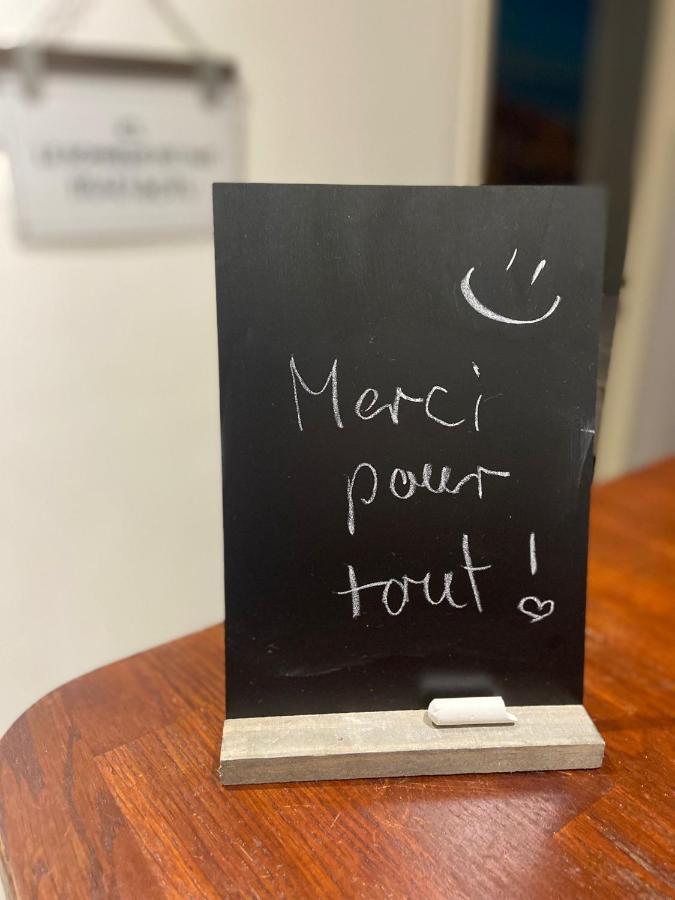 Merci
pour
tout !